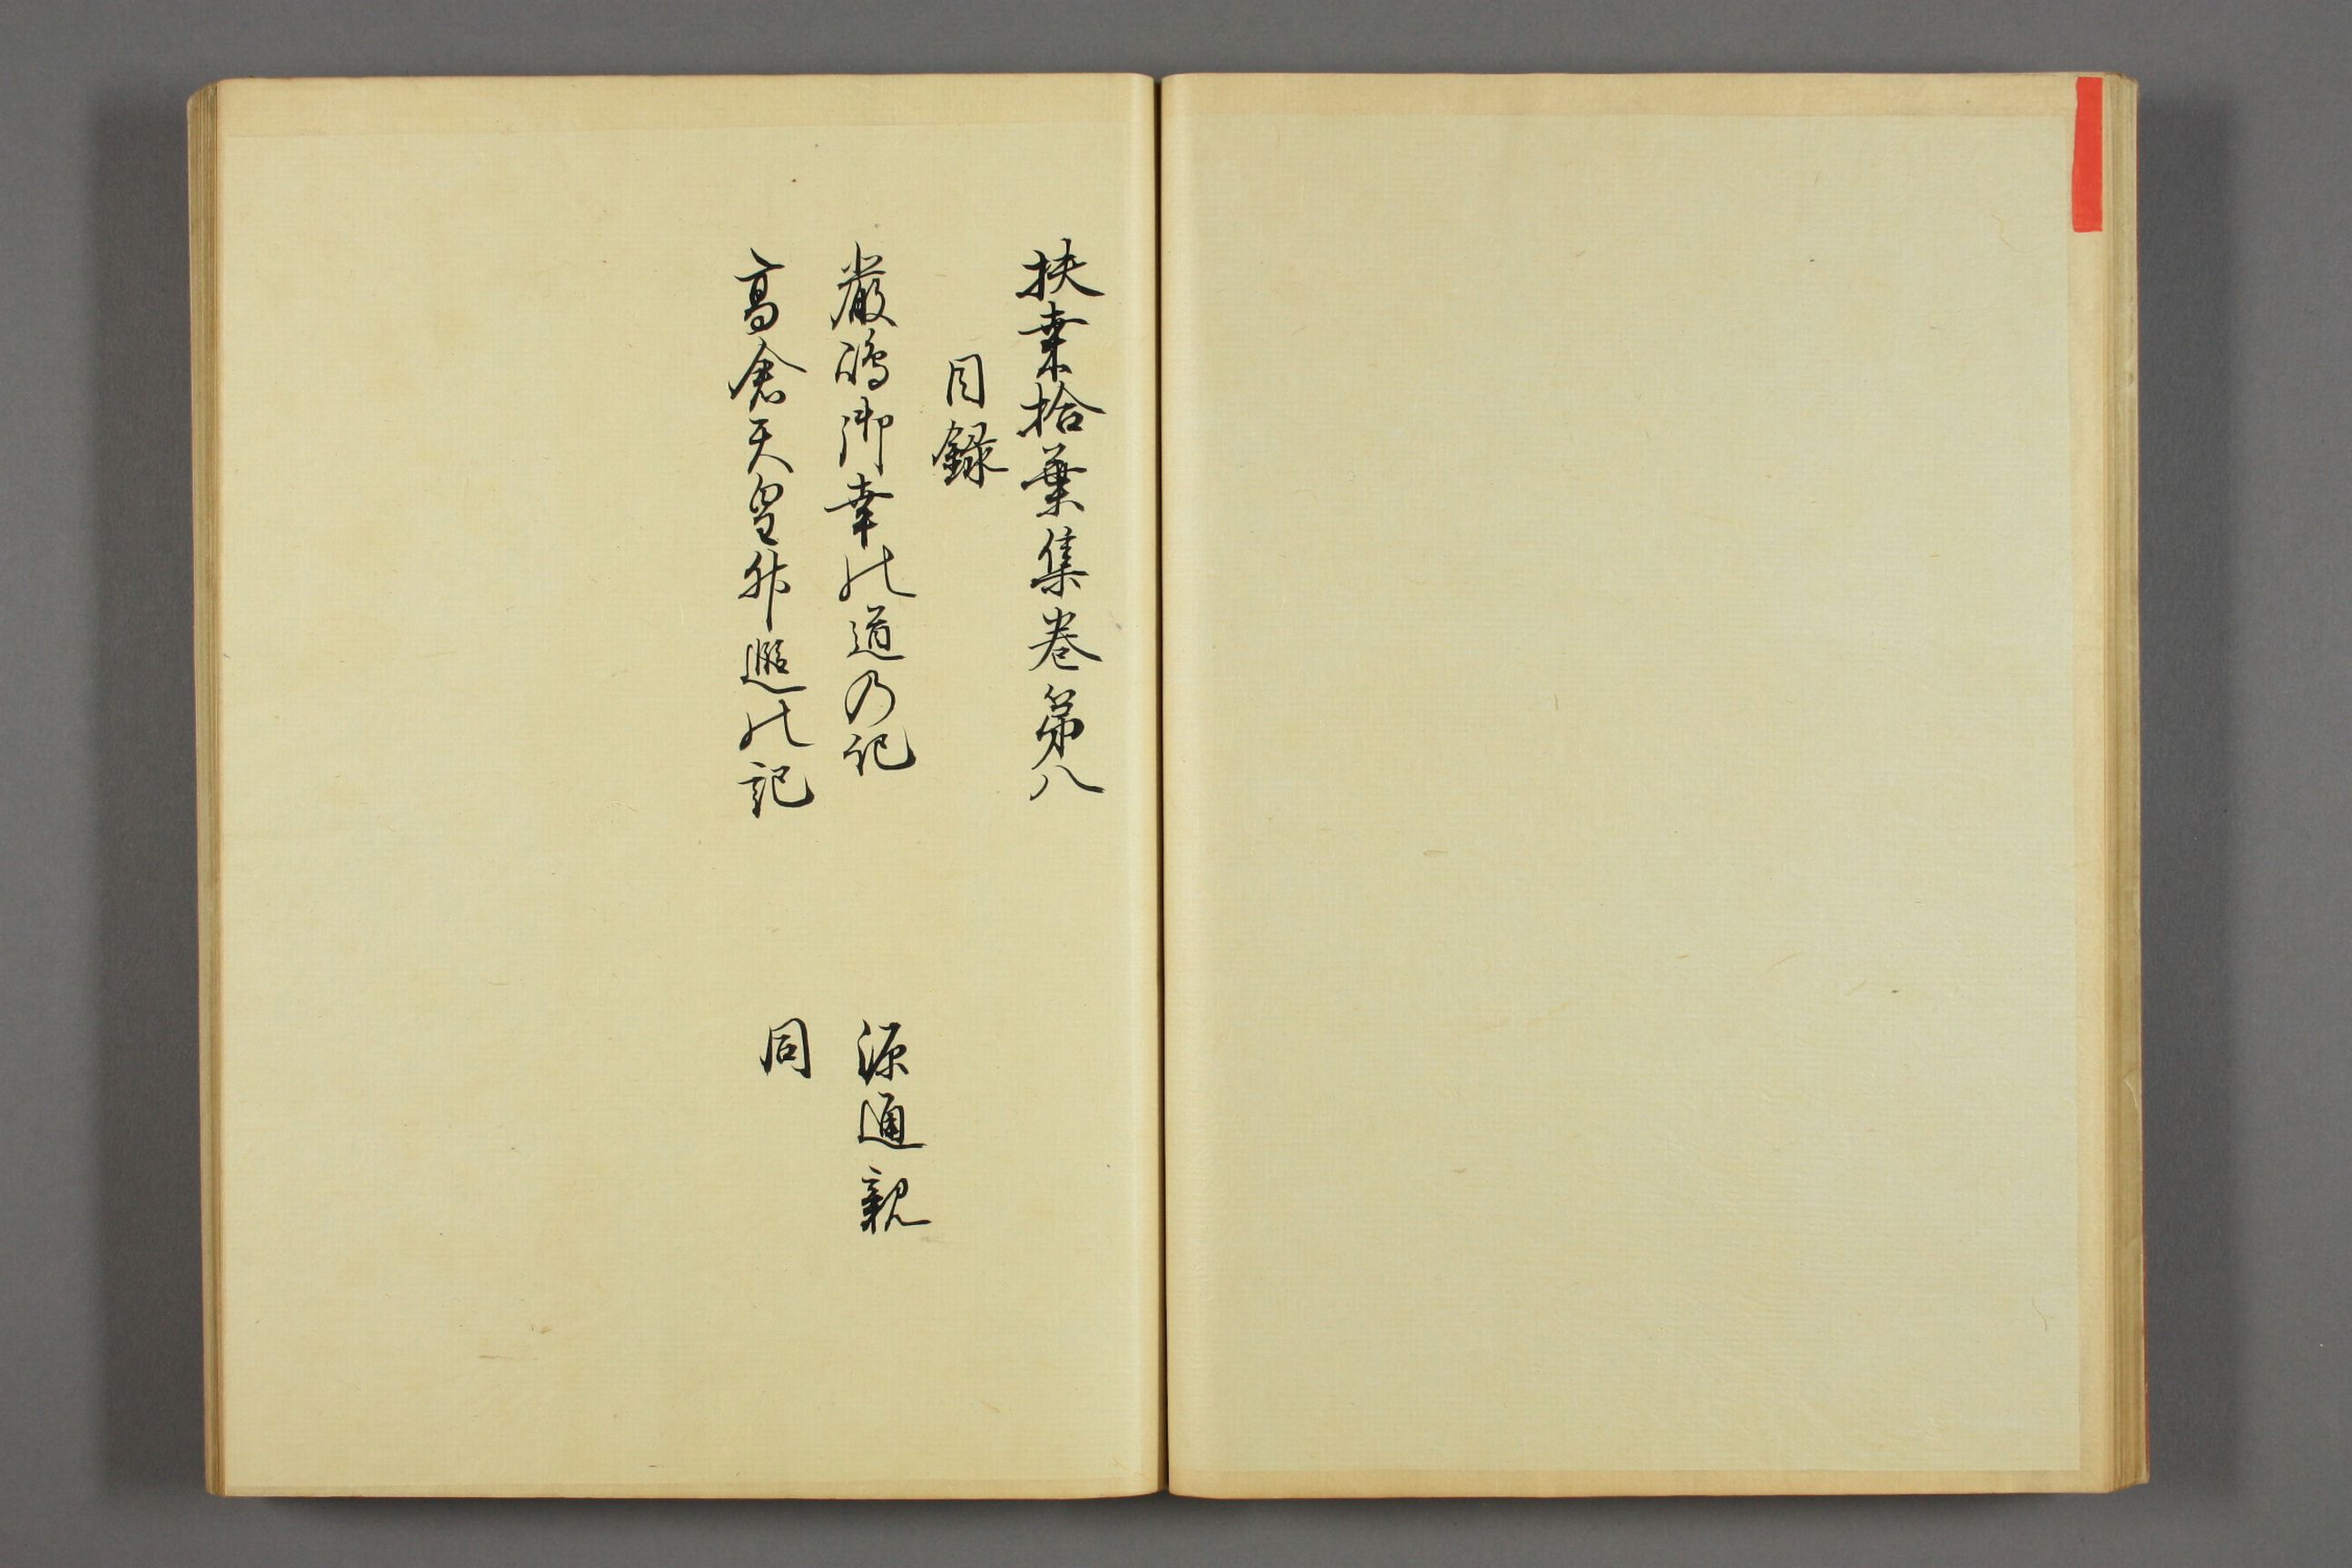 扶桒拾葉集巻第八
目録
厳嶋御幸の道乃記 源通親
高倉天皇升遐の記 同